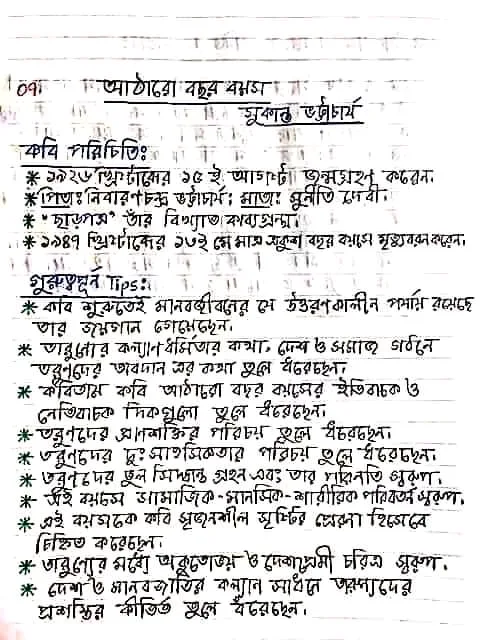 09
আঠারো বছর বয়স
সুকান্ত ভট্টাচার্য
কবি পরিচিতিঃ
* ১৯২৬ খ্রিস্টাব্দের ১৫ই আগস্ট জন্মগ্রহণ করেন।
* পিতাঃ নিবারণচন্দ্র ভট্টাচার্য; মাতাঃ সুনীতি দেবী।
* "ছাড়পত্র" তাঁর বিখ্যাত কাব্যগ্রন্থ।
* ১৯৪৭ খ্রিস্টাব্দের ১৩ই মে মাত্র একুশ বছর বয়সে মৃত্যুবরন করেন।
গুরুত্বপূর্ন Tips:
* কবি শুরুতেই মানবজীবনের যে উত্তরণকালীন পর্যায় রয়েছে
তার জয়গান গেয়েছেন।
* তারুণ্যের কল্যাণধর্মিতার কথা, দেশ ও সমাজ গঠনে
তরুণদের অবদান এর কথা তুলে ধরেছেন।
* কবিতায় কবি আঠারো বছর বয়সের ইতিবাচক ও
নেতিবাচক দিকগুলো তুলে ধরেছেন।
* তরুণদের প্রাণশক্তির পরিচয় তুলে ধরেছেন।
* তরুণদের দুঃসাহসিকতার পরিচয় তুলে ধরেছেন।
* তরুণদের ভুল সিদ্ধান্ত গ্রহন এবং তার পরিনতি স্বরূপ।
* এই বয়সে সামাজিক-মানসিক-শারীরিক পরিবর্তন স্বরূপ।
* এই বয়সকে কবি সৃজনশীল সৃষ্টির প্রেরনা হিসেবে
চিহ্নিত করেছেন।
* তারুণ্যের মধ্যে অকুতোভয় ও দেশপ্রেমী চরিত্র স্বরূপ।
* দেশ ও মানবজাতির কল্যান সাধনে তারুণ্যদের
প্রশস্তির কীর্তি তুলে ধরেছেন।